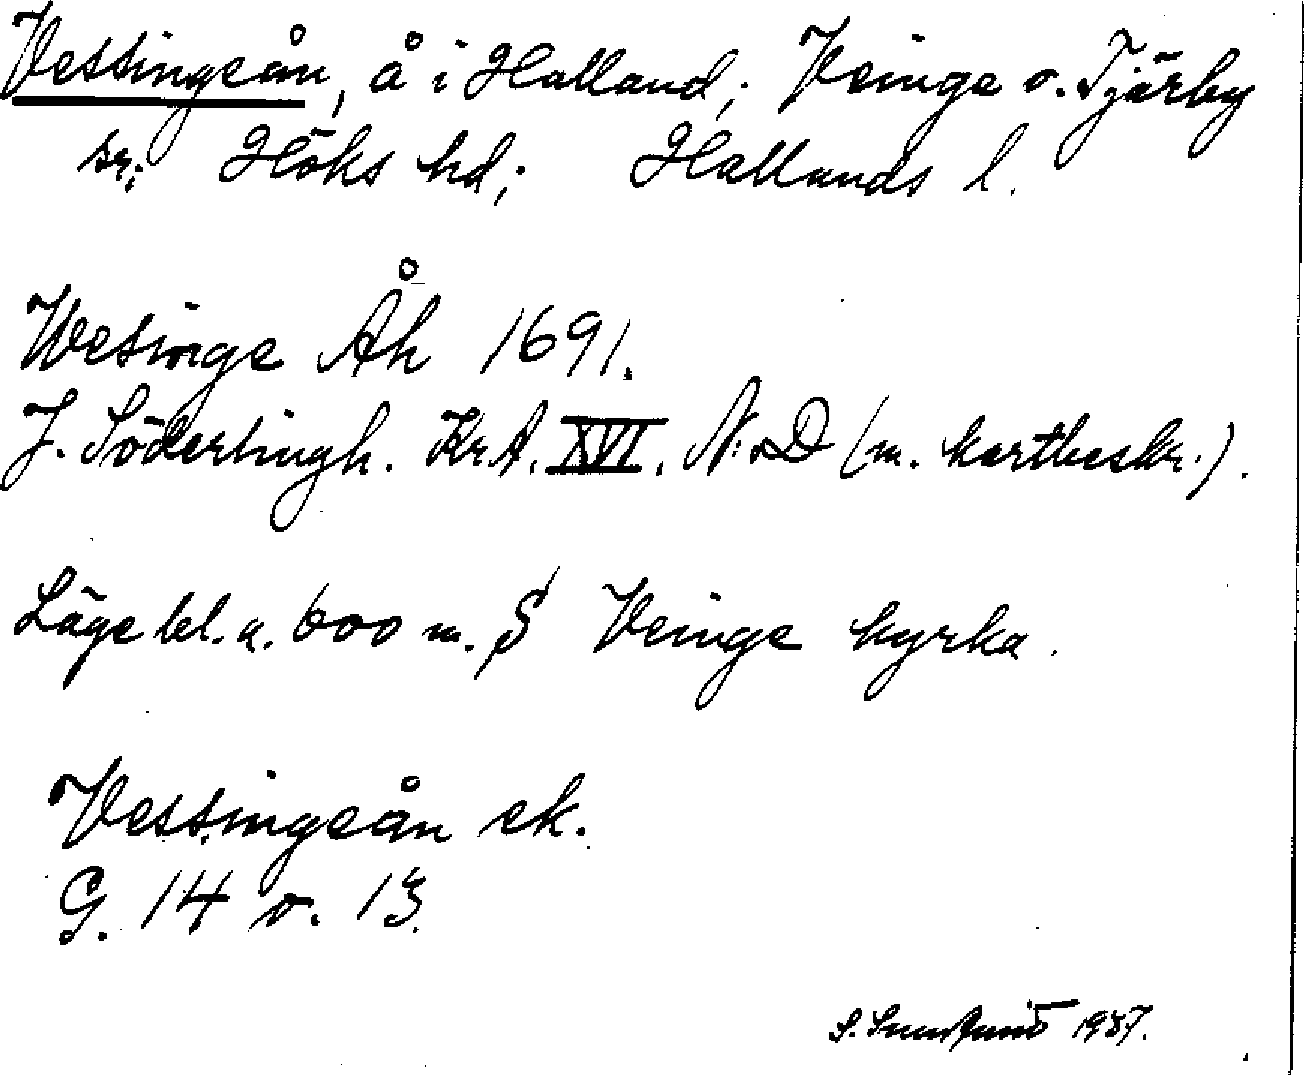 Vessingeån, å i Halland; Veinge o. Tjärby
sr; Höks hd; Hallands l.
Wesinge Åh 1691.
J. Söderlingh. Kr.A. XVI. N:o D (m. kartbeskr.).
Läge bl.a. 600 m. S Veinge kyrka.
Vessingeån ek.
G. 14 o. 13.
S. 1937.